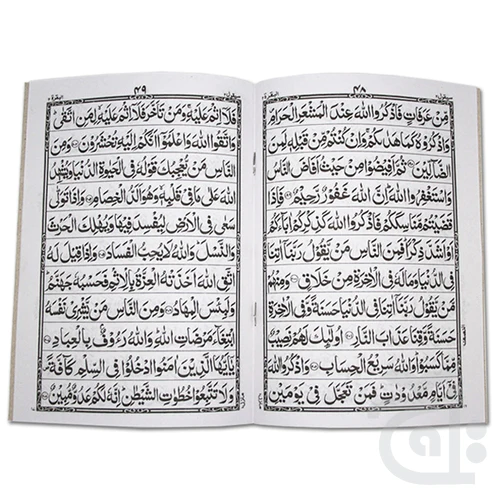 ۴۸
مِّنْ عَرَفَاتٍ فَاذْكُرُوا اللهَ عِنْدَ الْمَشْعَرِ الْحَرَامِ
وَاذْكُرُوْهُ كَمَا هَدٰىكُمْ وَاِنْ كُنْتُمْ مِّنْ قَبْلِهٖ لَمِنَ
الضَّآلِّيْنَ ثُمَّ اَفِيْضُوْا مِنْ حَيْثُ اَفَاضَ النَّاسُ
وَاسْتَغْفِرُوا اللهَ اِنَّ اللهَ غَفُوْرٌ رَّحِيْمٌ فَاِذَا
قَضَيْتُمْ مَّنَاسِكَكُمْ فَاذْكُرُوا اللهَ كَذِكْرِكُمْ اٰبَآءَكُمْ
اَوْ اَشَدَّ ذِكْرًا فَمِنَ النَّاسِ مَنْ يَّقُوْلُ رَبَّنَآ اٰتِنَا
فِى الدُّنْيَا وَمَا لَهٗ فِى الْاٰخِرَةِ مِنْ خَلَاقٍ وَمِنْهُمْ
مَّنْ يَّقُوْلُ رَبَّنَآ اٰتِنَا فِى الدُّنْيَا حَسَنَةً وَّفِى الْاٰخِرَةِ
حَسَنَةً وَّقِنَا عَذَابَ النَّارِ اُولٰٓئِكَ لَهُمْ نَصِيْبٌ
مِّمَّا كَسَبُوْا وَاللهُ سَرِيْعُ الْحِسَابِ وَاذْكُرُوا اللهَ
فِىْٓ اَيَّامٍ مَّعْدُوْدٰتٍ فَمَنْ تَعَجَّلَ فِىْ يَوْمَيْنِ
۴۹
فَلَآ اِثْمَ عَلَيْهِ وَمَنْ تَاَخَّرَ فَلَآ اِثْمَ عَلَيْهِ لِمَنِ اتَّقٰى
وَاتَّقُوا اللهَ وَاعْلَمُوْٓا اَنَّكُمْ اِلَيْهِ تُحْشَرُوْنَ وَمِنَ
النَّاسِ مَنْ يُّعْجِبُكَ قَوْلُهٗ فِى الْحَيٰوةِ الدُّنْيَا وَيُشْهِدُ
اللهَ عَلٰى مَا فِىْ قَلْبِهٖ وَهُوَ اَلَدُّ الْخِصَامِ وَاِذَا تَوَلّٰى
سَعٰى فِى الْاَرْضِ لِيُفْسِدَ فِيْهَا وَيُهْلِكَ الْحَرْثَ
وَالنَّسْلَ وَاللهُ لَا يُحِبُّ الْفَسَادَ وَاِذَا قِيْلَ لَهُ
اتَّقِ اللهَ اَخَذَتْهُ الْعِزَّةُ بِالْاِثْمِ فَحَسْبُهٗ جَهَنَّمُ
وَلَبِئْسَ الْمِهَادُ وَمِنَ النَّاسِ مَنْ يَّشْرِىْ نَفْسَهُ
ابْتِغَآءَ مَرْضَاتِ اللهِ وَاللهُ رَءُوْفٌۢ بِالْعِبَادِ
يٰٓاَيُّهَا الَّذِيْنَ اٰمَنُوا ادْخُلُوْا فِى السِّلْمِ كَآفَّةً
وَّلَا تَتَّبِعُوْا خُطُوٰتِ الشَّيْطٰنِ اِنَّهٗ لَكُمْ عَدُوٌّ مُّبِيْنٌ